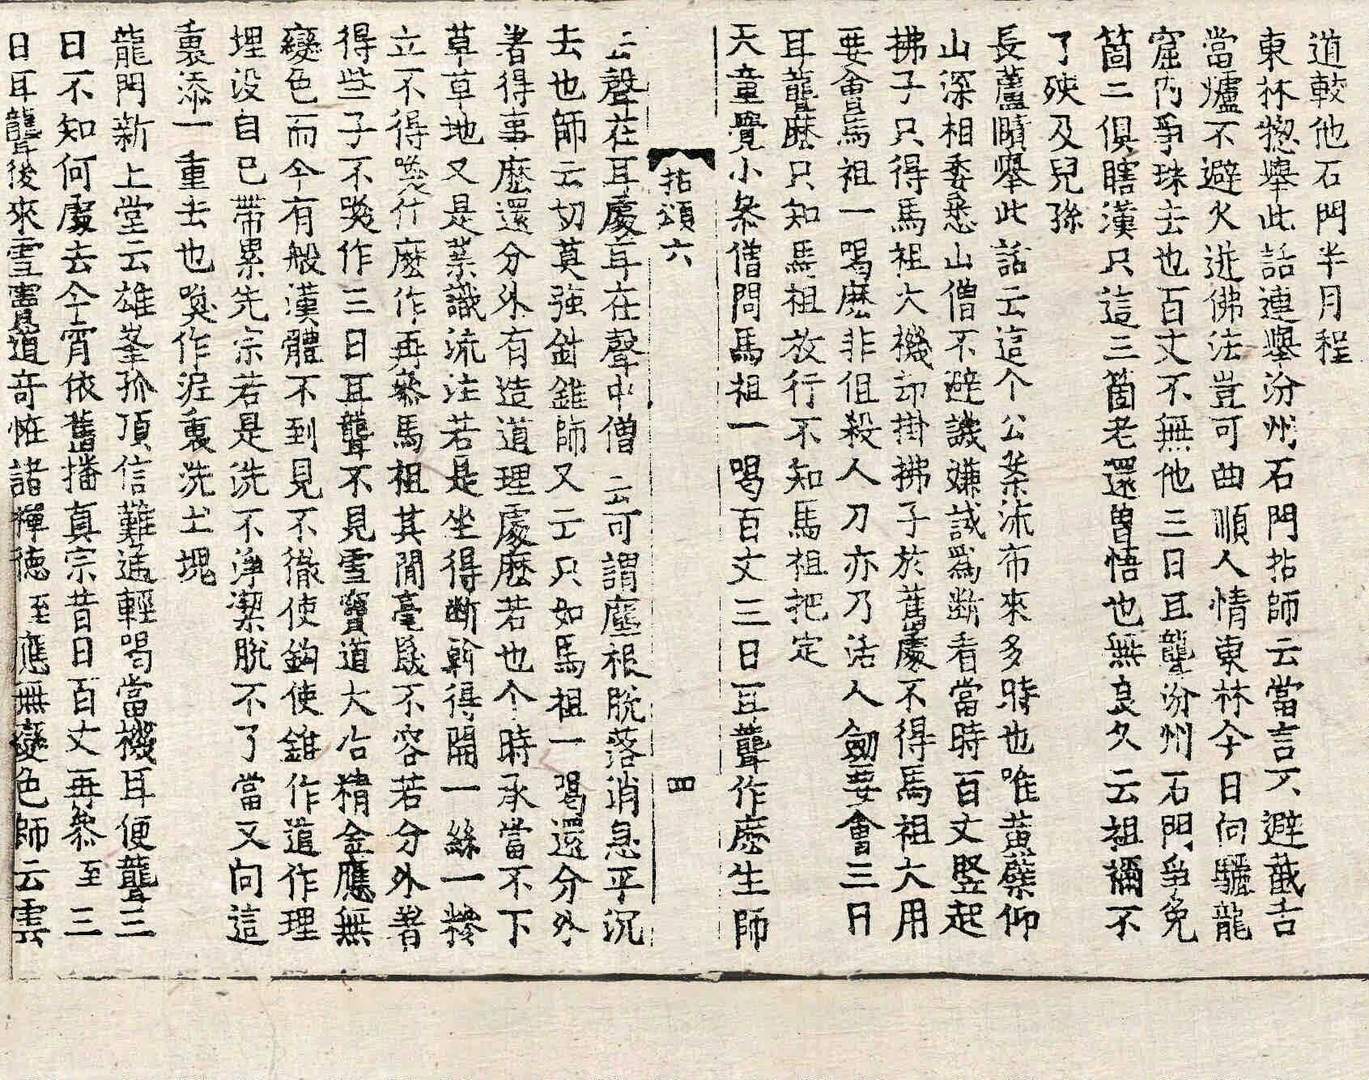 道較他石門半月程
東林揔舉此話連擧汾州石門拈師云當言不避截舌
當爐不避火迸佛法豈可曲順人情東林今日向驪龍
窟內爭珠去也百丈不無他三日耳聾汾州石門爭免
箇二俱瞎漢只這三箇老還曾悟也無良久云祖禰不
了殃及兒孫
長蘆賾擧此話云這个公案流布來多時也唯黃蘗仰
山深相委悉山僧不避譏嫌試爲斷看當時百丈竪起
拂子只得馬祖大機却掛拂子於舊處不得馬祖大用
要會馬祖一喝麽非但殺人刀亦乃活人劒要會三日
耳聾麽只知馬祖放行不知馬祖把定
天童覺小叅僧問馬祖一喝百丈三日耳聾作麽生師
拈頌六 四
云聲在耳處耳在聲中僧云可謂塵根脫落消息平沉
去也師云切莫強針錐師又云只如馬祖一喝還分外
著得事麽還分外有造道理處麽若也个時承當不下
草草地又是業識流注若是坐得斷斡得開一絲一糝
立不得喚什麽作再叅馬祖其間毫髮不容若分外著
得些子不喚作三日耳聾不見雪竇道大冶精金應無
變色而今有般漢體不到見不徹使鈎使錐作道作理
埋没自己帶累先宗若是洗不淨潔脫不了當又向這
裏添一重去也喚作泥裏洗土塊
龍門新上堂云雄峯孤頂信難遙輕喝當機耳便聾三
日不知何處去今宵依舊播真宗昔日百丈再叅至三
日耳聾後來雪竇道奇恠諸禪德至應無變色師云雲